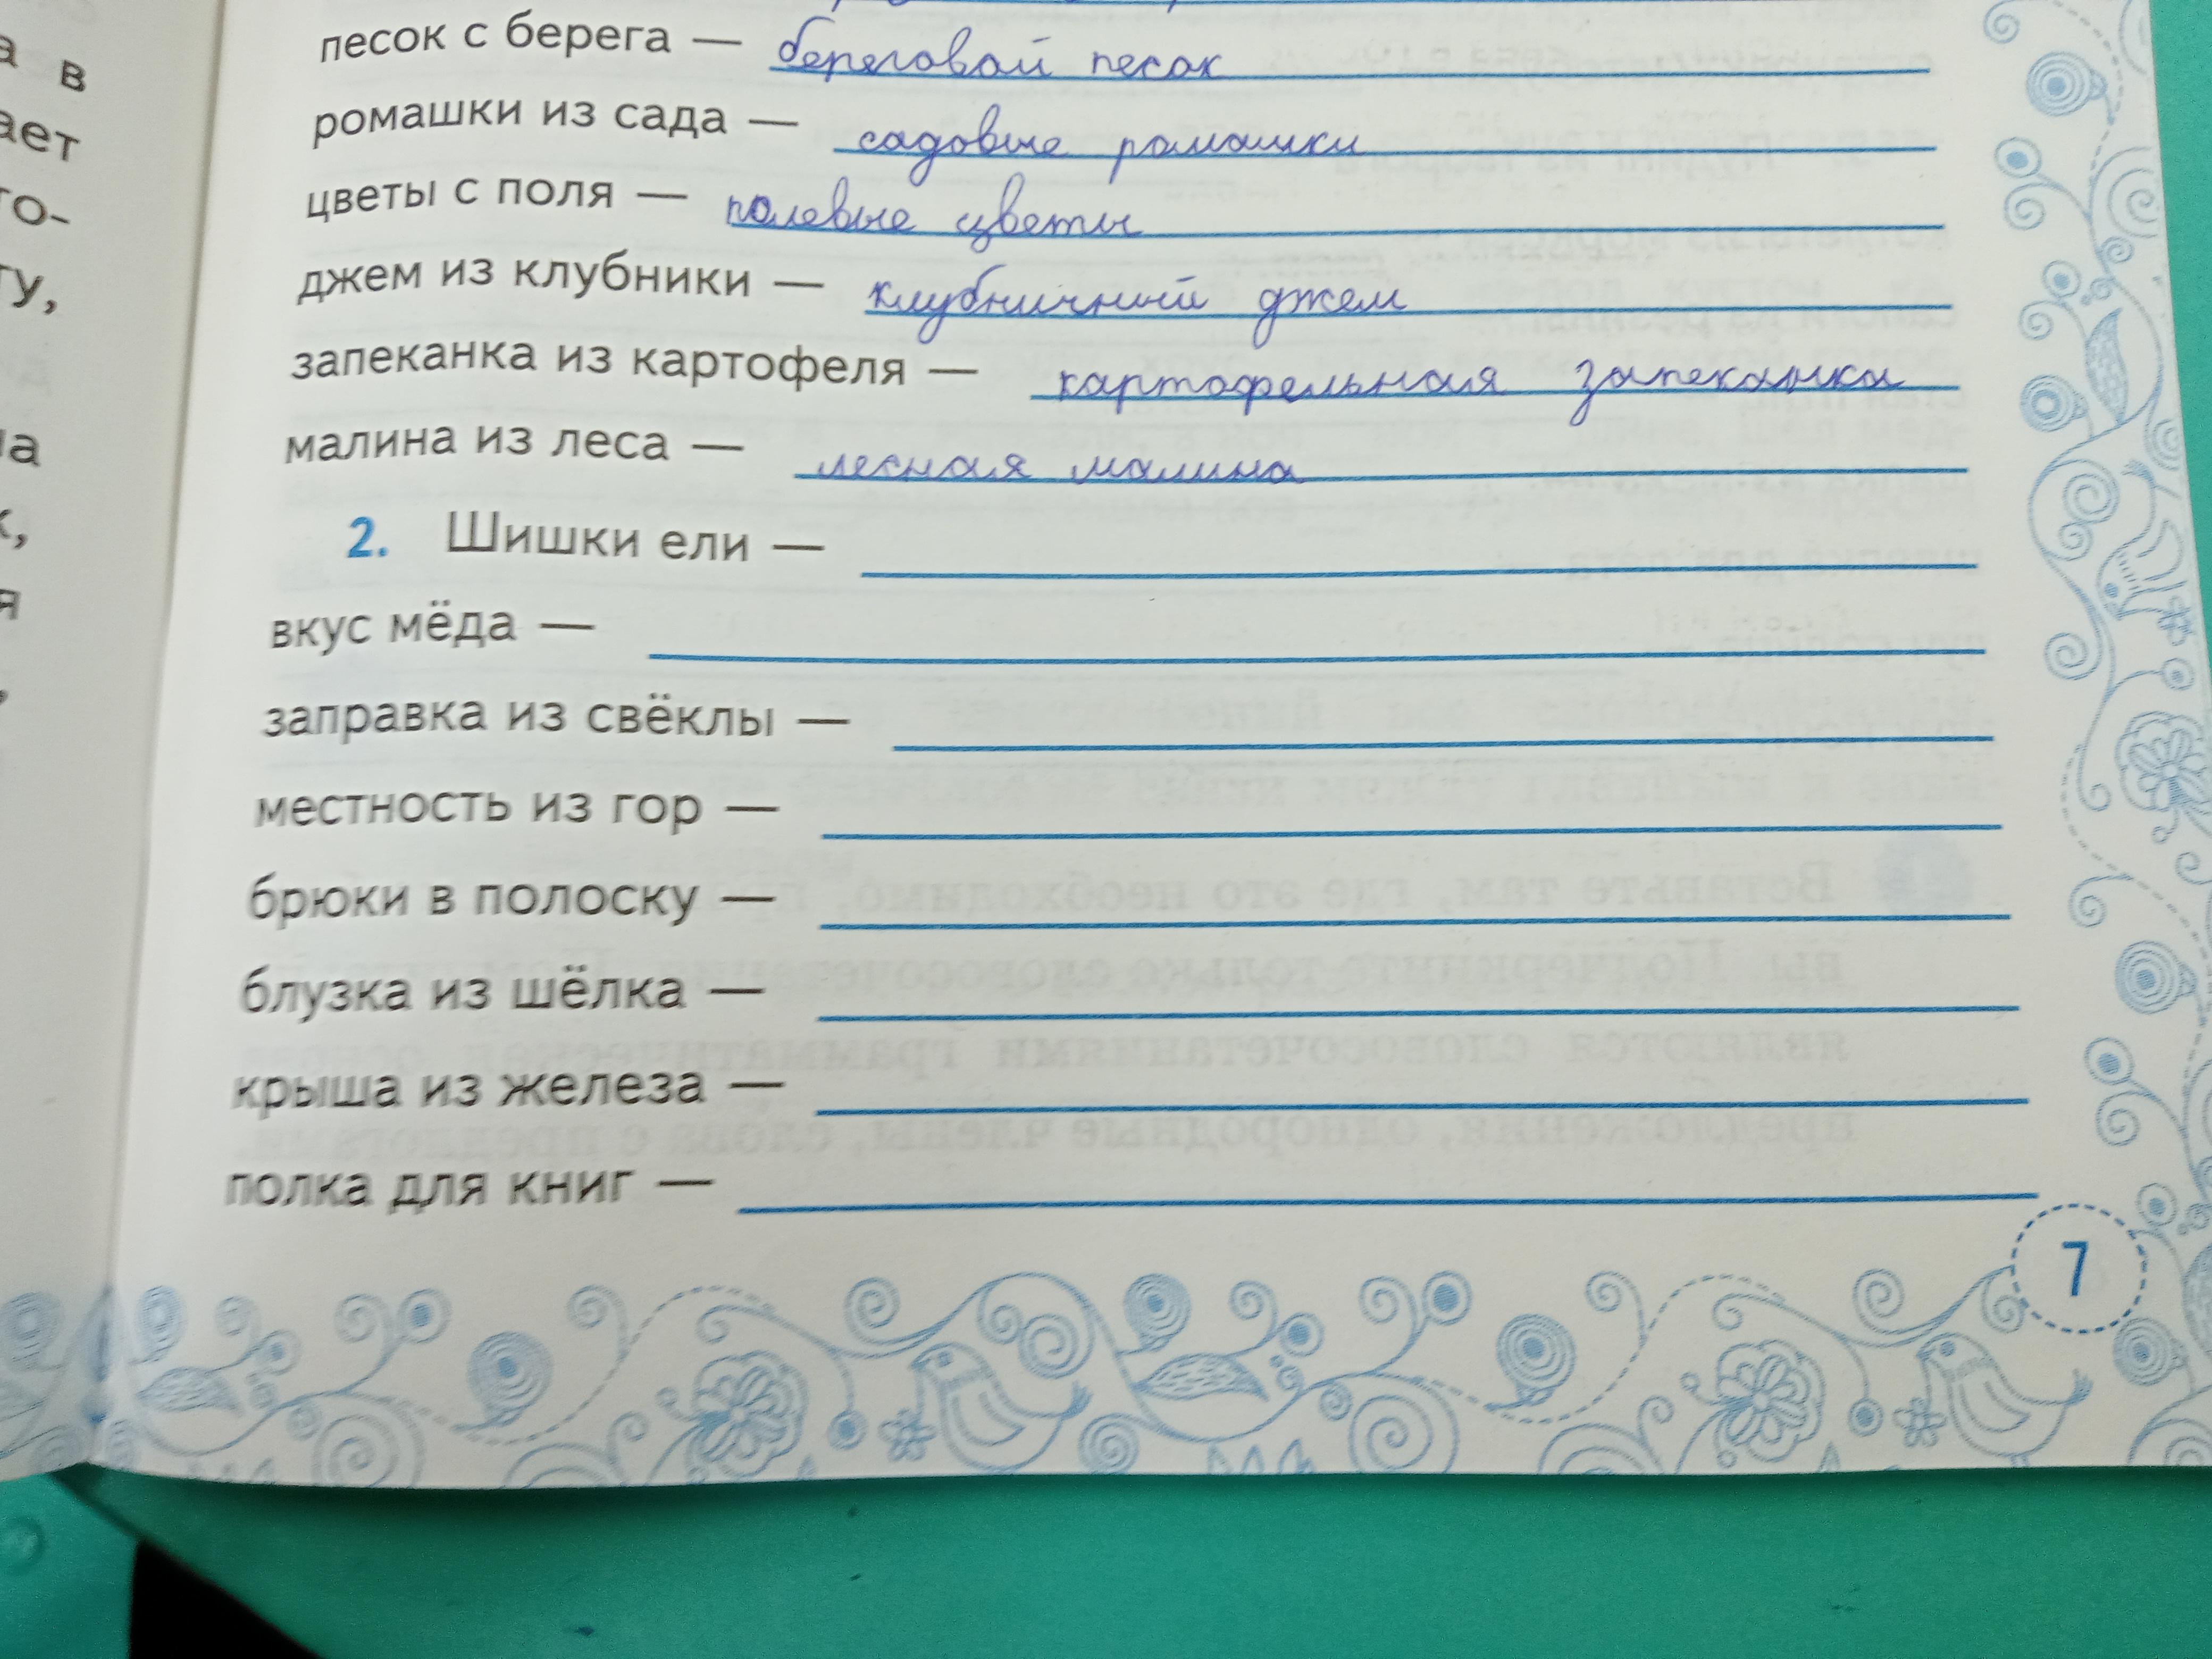 а в
песок с берега — береговой песок
ает
ромашки из сада — садовые ромашки
то-
цветы с поля — полевые цветы
ту,
джем из клубники — клубничний джем
запеканка из картофеля — картофельная запеканка
малина из леса — лесная малина
2. Шишки ели —
вкус мёда —
я
заправка из свёклы —
местность из гор —
брюки в полоску —
блузка из шёлка —
крыша из железа —
полка для книг —
7